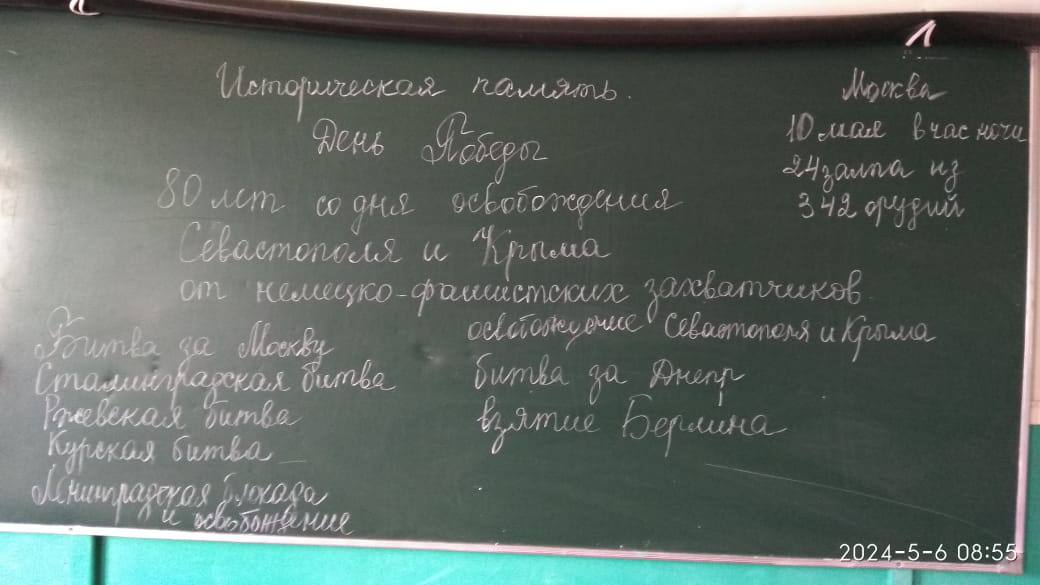 Историческая память.
День Победы
80 лет со дня освобождения
Севастополя и Крыма
от немецко-фашистских захватчиков
Москва
10 мая в час ночи
24 залпа из
342 орудий
Битва за Москву
Сталинградская битва
Ржевская битва
Курская битва
Лениградская блокада
и освобождение
освобождение Севастополя и Крыма
битва за Днепр
взятие Берлина
2024-5-6 08:55